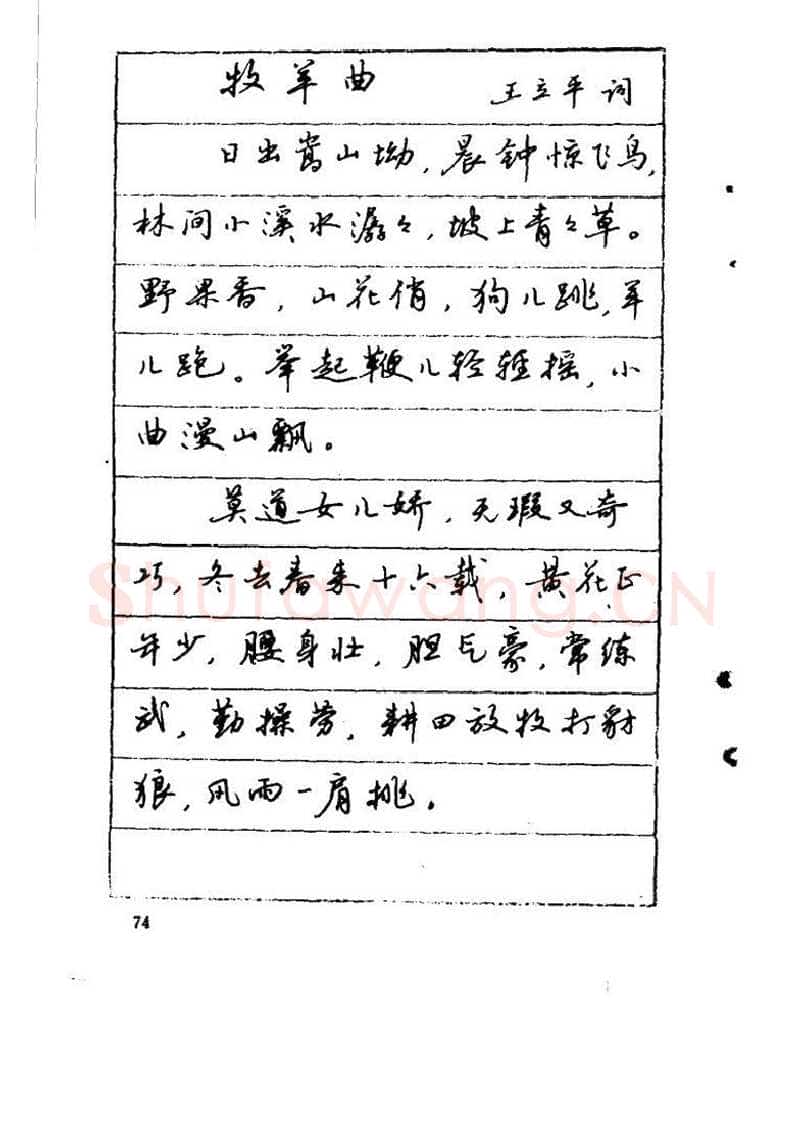 牧羊曲 王立平 词
日出嵩山坳,晨钟惊飞鸟,
林间小溪水潺々,坡上青々草。
野果香,山花俏,狗儿跳,羊
儿跑。举起鞭儿轻轻摇,小
曲漫山飘。
莫道女儿娇,无瑕又奇
巧,冬去春来十六载,黄花正
年少,腰身壮,胆气豪,常练
武,勤操劳,耕田放牧打豺
狼,风雨一肩挑。
74
Shufawang.CN